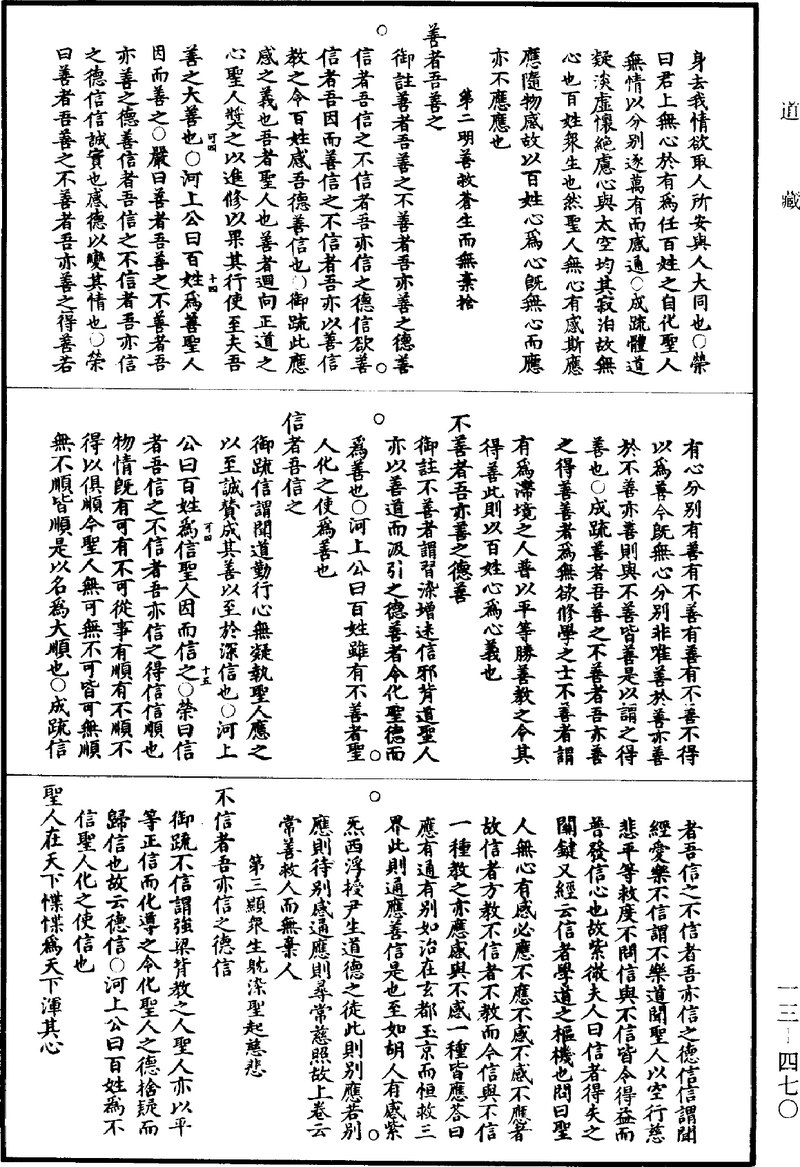 道藏
身去我情欲取人所安與人大同也○榮
曰君上無心於有為任百姓之自化聖人
無情以分別逐萬有而感通○成疏體道
疑淡虛懷絕慮心與太空均其寂泊故無
心也百姓衆生也然聖人無心有感斯應
應隨物感故以百姓心為心旣無心而應
亦不應應也
第二明善救蒼生而無棄捨
善者吾善之
御註善者吾善之不善者吾亦善之德善
信者吾信之不信者吾亦信之德信欲善
信者吾因而善信之不信者吾亦以善信
教之令百姓感吾德善信也○御疏此應
感之義也吾者聖人也善者迴向正道之
心聖人獎之以進修以果其行使至夫吾
善之大善也○河上公曰百姓為善聖人
可四
十四
因而善之○嚴曰善者吾善之不善者吾
亦善之德善信者吾信之不信者吾亦信
之德信信誠實也感德以變其情也○榮
曰善者吾善之不善者吾亦善之得善若
有心分別有善有不善有善有不善不得
以為善今旣無心分別非唯善於善亦善
於不善亦善則與不善皆善是以謂之得
善也○成疏善者吾善之不善者吾亦善
之得善善者為無欲修學之士不善者謂
有為滯境之人普以平等勝善教之令其
得善此則以百姓心為心義也
不善者吾亦善之德善
御註不善者謂習染增迷信邪背道聖人
亦以善道而汲引之德善者令化聖德而
為善也○河上公曰百姓雖有不善者聖
人化之使為善也
信者吾信之
御疏信謂聞道勤行心無疑執聖人應之
以至誠贊成其善以至於深信也○河上
公曰百姓為信聖人因而信之○榮曰信
可四
十五
者吾信之不信者吾亦信之得信信順也
物情旣有可有不可從事有順有不順不
得以俱順今聖人無可無不可皆可無順
無不順皆順是以名為大順也○成疏信
者吾信之不信者吾亦信之德信信謂聞
經愛樂不信謂不樂道聞聖人以空行慈
悲平等救度不問信與不信皆令得益而
普發信心也故紫微夫人曰信者得失之
關鍵又經云信者學道之樞機也問曰聖
人無心有感必應不應不感不感不應者
故信者方教不信者不教而今信與不信
一種教之亦應感與不感一種皆應荅曰
應有通有別如治在玄都玉京而恒救三
界此則通應善信是也至如胡人有感紫
炁西浮授尹生道德之徒此則別應若別
應則待別感通應則尋常慈照故上卷云
常善救人而無棄人
第三顯衆生躭染聖起慈悲
不信者吾亦信之德信
御疏不信謂強梁背教之人聖人亦以平
等正信而化導之令化聖人之德捨疑而
歸信也故云德信○河上公曰百姓為不
信聖人化之使信也
聖人在天下惵惵為天下渾其心
一三－四七○